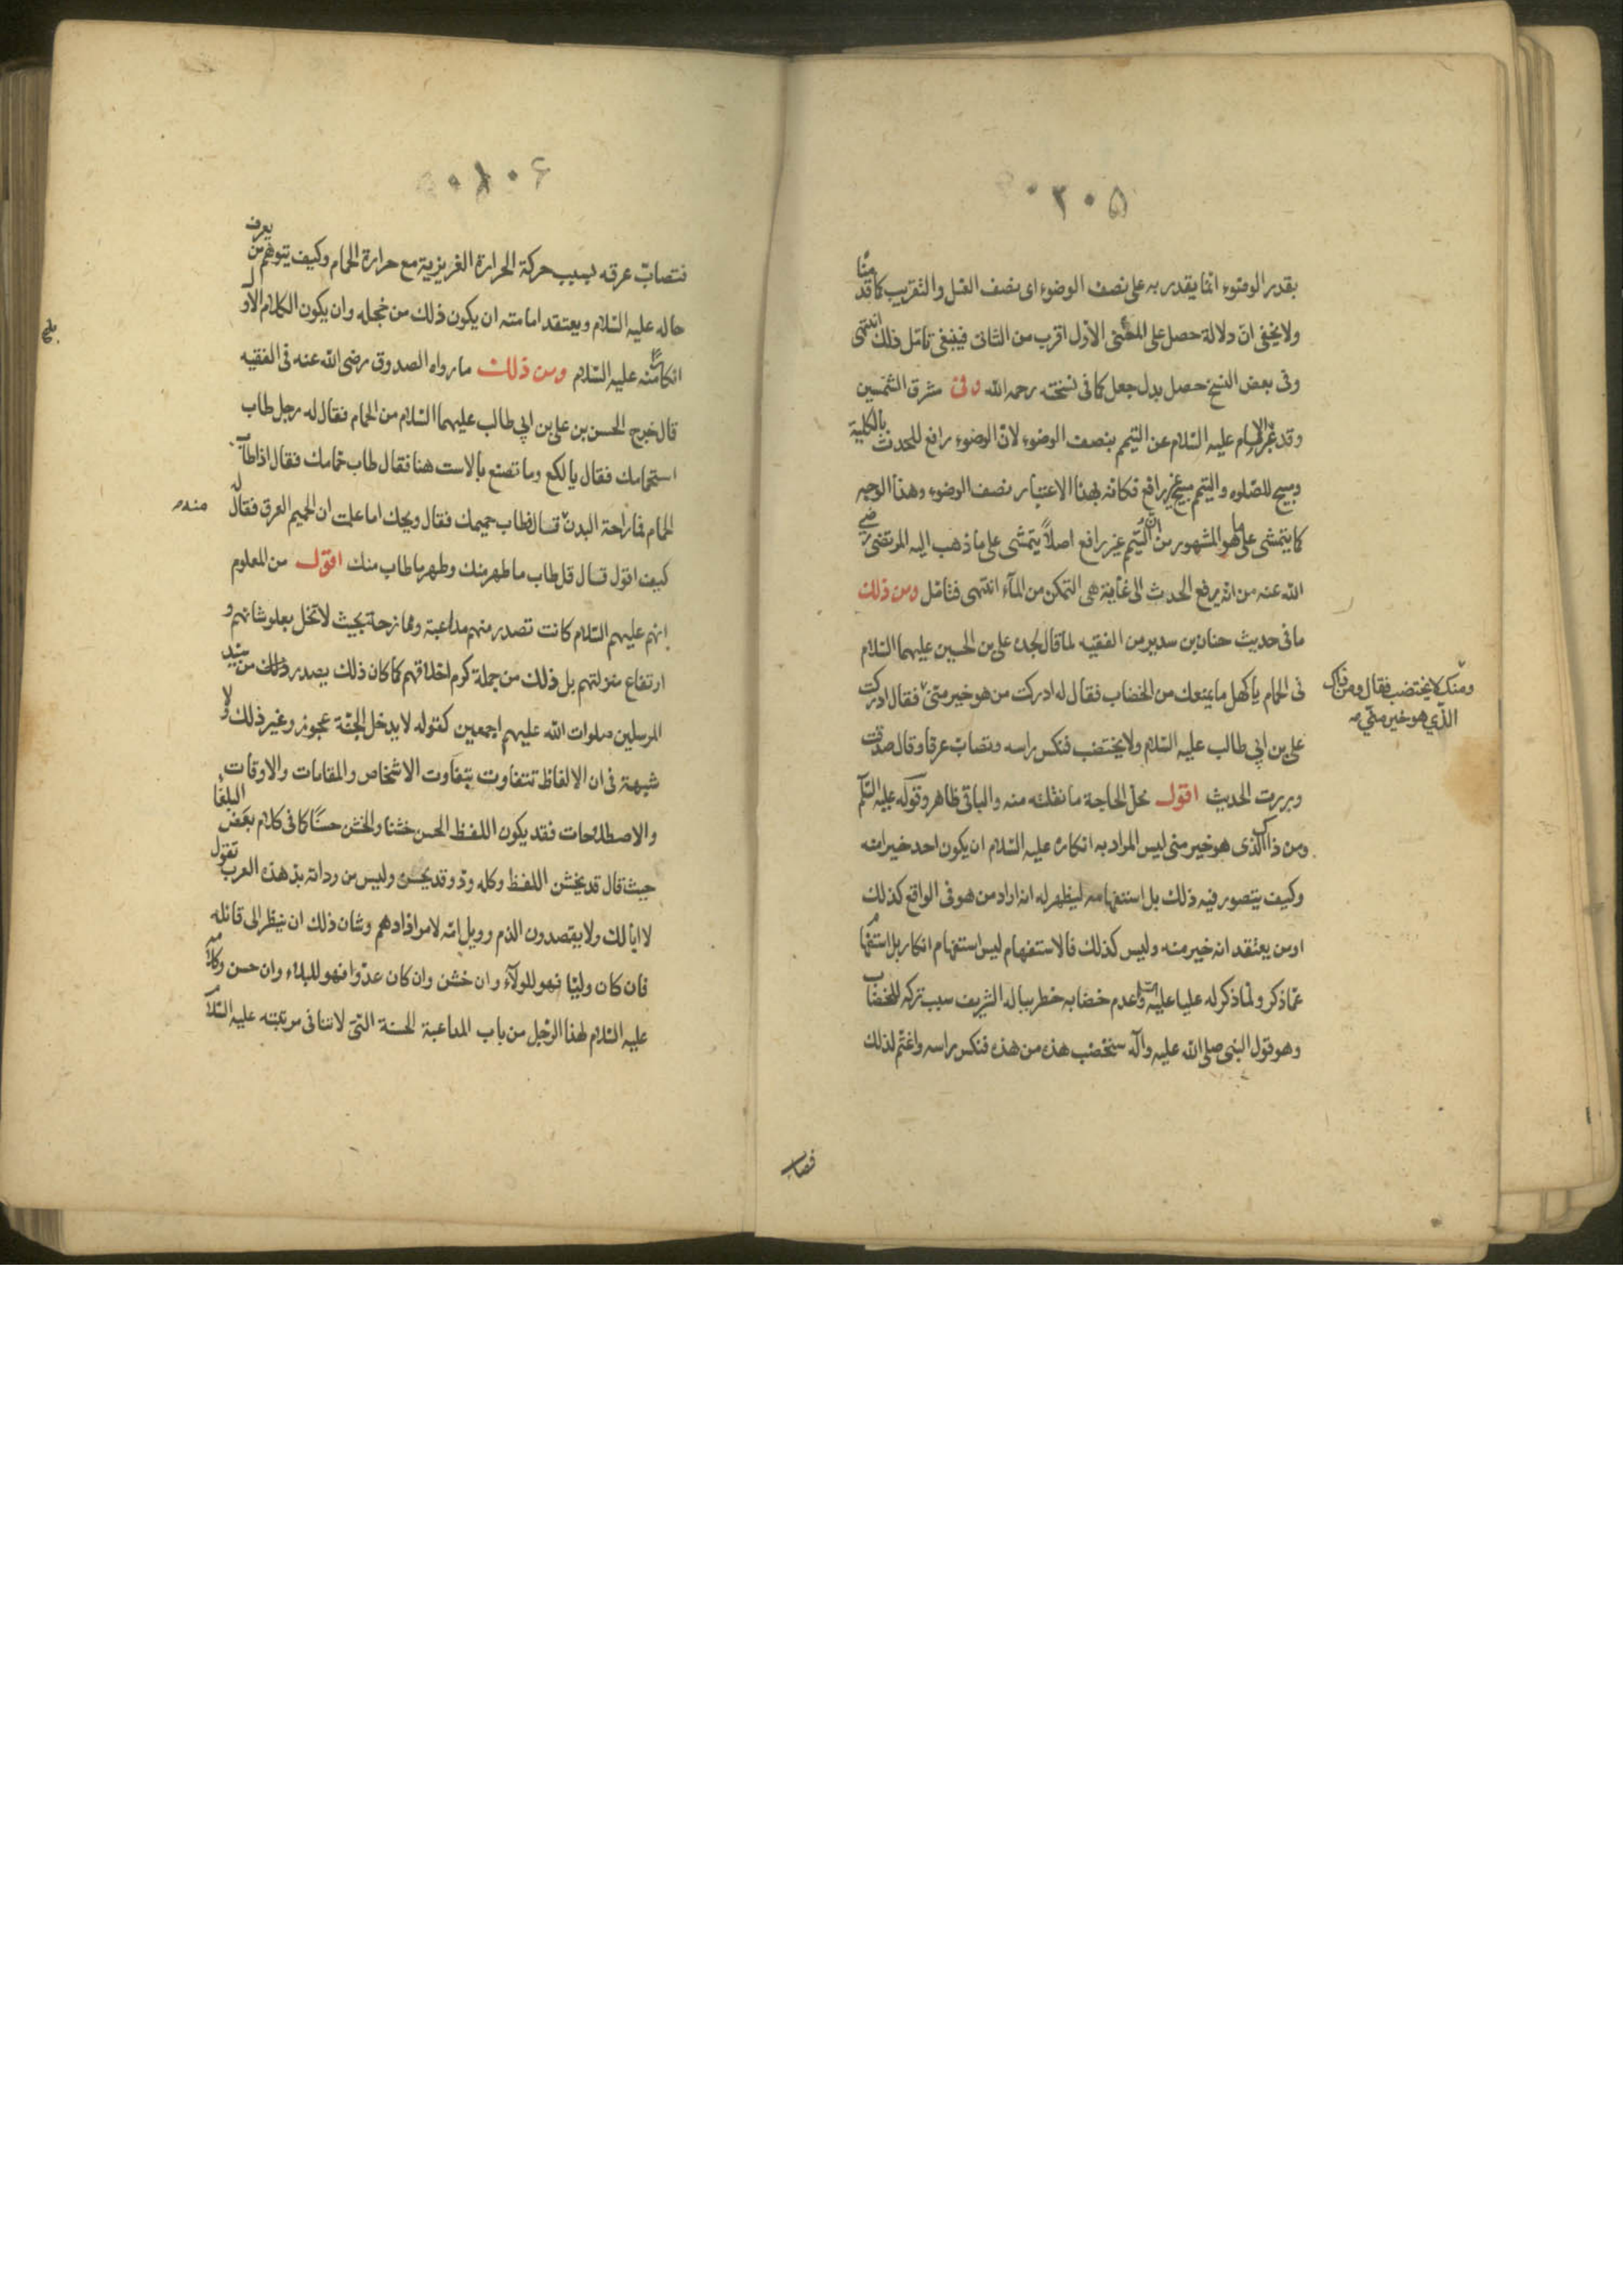 ۲۰۵
بقدر الوضوء انما يقدر به على نصف الوضوء اى نصف الغسل والتقريب كما قدمنا
ولا يخفى ان دلالة حصل على المعنى الاول اقرب من الثانى فينبغى تامل ذلك انتهى
وفى بعض النسخ حصل بدل جعل كما فى نسخته رحمه الله وفى مشرق الشمسين
وقد عبر الامام عليه السلام عن التيمم بنصف الوضوء لان الوضوء رافع للحدث بالكلية
ومبيح للصلوة والتيمم مبيح غير رافع فكانه بهذا الاعتبار نصف الوضوء وهذا الوجه
كما يتمشى على ما هو المشهور من ان التيمم غير رافع اصلاً يتمشى على ما ذهب اليه المرتضى رضى
الله عنه من انه يرفع الحدث الى غاية هى التمكن من الماء انتهى فتامل ومن ذلك
ما فى حديث حنان بن سدير من الفقيه لما قال لجده على بن الحسين عليهما السلام
فى الحمام يا كهل ما يمنعك من الخضاب فقال له ادركت من هو خير منى فقال ادركت
ومنك لا يختضب فقال ومن ذاك
الذي هو خير مني
على بن ابى طالب عليه السلام ولا يختضب فنكس راسه وتصاب عرقا وقال صدقت
وبررت الحديث اقول محل الحاجة ما نقلته منه والباقى ظاهر وقوله عليه السلم
ومن ذاك الذى هو خير منى ليس المراد به انكاره عليه السلام ان يكون احد خيرا منه
وكيف يتصور فيه ذلك بل استفهامه ليظهر له انه اراد من هو فى الواقع كذلك
او من يعتقد انه خير منه وليس كذلك فالاستفهام ليس استفهام انكار بل استفهام
عما ذكر ولما ذكر له عليا عليه السلم وعدم خضابه خطر بباله الشريف سبب تركه للخضاب
وهو قول النبى صلى الله عليه وآله ستخضب هذه من هذه فنكس راسه واغتم لذلك
فتصاب
۱۰۶
فتصاب عرقه بسبب حركة الحرارة الغريزية مع حرارة الحمام وكيف يتوهم من يعرف
حاله عليه السلام ويعتقد امامته ان يكون ذلك من خجله وان يكون الكلام الاول
انكارا منه عليه السلام ومن ذلك ما رواه الصدوق رضى الله عنه فى الفقيه
قال خرج الحسن بن على بن ابى طالب عليهما السلام من الحمام فقال له رجل طاب
استحمامك فقال يا لكع وما تصنع بالاست هنا فقال طاب حمامك فقال اذا طاب
الحمام فما راحة البدن قال فطاب حميمك فقال ويحك اما علمت ان الحميم العرق فقال له
كيف اقول قال قل طاب ما طهر منك وطهر ما طاب منك اقول من المعلوم
انهم عليهم السلام كانت تصدر منهم مداعبة وممازحة بحيث لا تخل بعلو شانهم و
ارتفاع منزلتهم بل ذلك من جملة كرم اخلاقهم كما كان ذلك يصدر من سيد
المرسلين صلوات الله عليهم اجمعين كقوله لا يدخل الجنة عجوز وغير ذلك ولا
شبهة فى ان الالفاظ تتفاوت بتفاوت الاشخاص والمقامات والاوقات
والاصطلاحات فقد يكون اللفظ الحسن خشنا والخشن حسنًا كما فى كلام بعض البلغا
حيث قال قد يخشن اللفظ وكله ود وقد يحسن وليس من ودانه بذ هذه العرب تقول
لا ابا لك ولا يقصدون الذم وويل امه لامر اذا دهم وشان ذلك ان ينظر الى قائله
فان كان وليا فهو للولآء وان خشن وان كان عدوا فهو للبلاء وان حسن وكلامه
عليه السلام لهذا الرجل من باب المداعبة الحسنة التى لا تنافى مرتبته عليه السلام